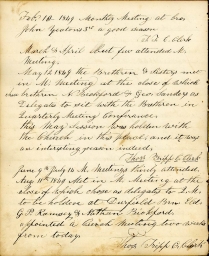 Feb. 10. 1849 Monthly Meeting at bro
John Yeatons 3rd a good season
Clerk
March & April Meet few attended M.
Meeting.
May 12 1849 the Brethren & Sisters met
in M. Meeting at the close of which
brethren N Bickford & Geo. Sanders as
Deligats to sit with the Brethren in
Quarterly Meeting Conference.
this May session was holden with
the Church in this place, and it was
an interesting season indeed,
Thos. Tripp C. Clerk
June 9th July 14 M. Meetings thinly attended
Aug 11th 1849 Met in M. Meeting at the
close of which chose as deligats to Q.M.
to be holden at Enfield Brn Eld.
G.P. Ramsey & Nathan Bickford.
appointed a Church Meeting two weeks
from today.
Thos Tripp C. Clerk